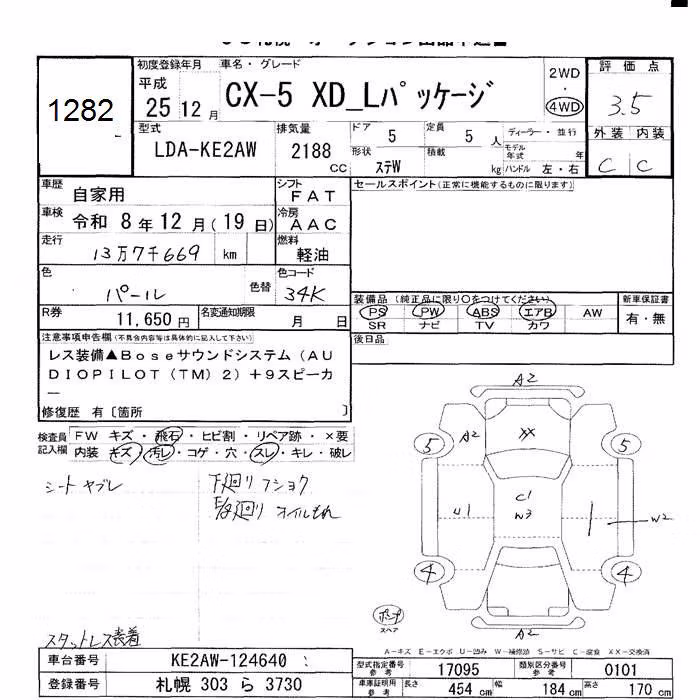 1282
初度登録年月 車名・グレード
平成
25 12 月
CX-5 XD_Lパッケージ
2WD
・
4WD
評価点
3.5
外装 内装
C C
型式 排気量 ドア 定員 ディーラー・並行
LDA-KE2AW 2188 CC 5 5 人
形状 積載 モデル年式 年
ステW kg ハンドル 左・右
車歴 自家用 シフト FAT
セールスポイント(正常に機能するものに限ります)
車検 令和 8 年 12 月(19 日) 冷房 AAC
走行 13万7千669 km 燃料 軽油
色 パール 色替 色コード 34K
装備品 (純正品に限り○をつけてください) 新車保証書
PS PW ABS エアB AW 有・無
SR ナビ TV カワ
R券 11,650円 名変通知期限 月 日
後日品
注意事項申告欄(不具合内容等は具体的に記入して下さい)
レス装備▲Boseサウンドシステム(AU
DIOPILOT(TM)2)+9スピーカ
ー
修復歴 有〔箇所 〕
検査員 FW キズ・飛石・ヒビ割・リペア跡・×要
記入欄 内装 キズ・汚レ・コゲ・穴・スレ・キレ・破レ
シートヤブレ
下廻りフショク
E/g廻りオイルもれ
A2
5 A2 XX 5
U1 C1 W2
W3
4 4
A2
パンク
スペア
スタットレス装着
A-キズ E-エクボ U-凹み W-補修跡 S-サビ C-腐食 XX-交換済
車台番号 KE2AW-124640
登録番号 札幌 303 ら 3730
型式指定番号 参考 17095 類別区分番号 参考 0101
車庫証明用 参考 長さ 454 cm 幅 184 cm 高さ 170 cm